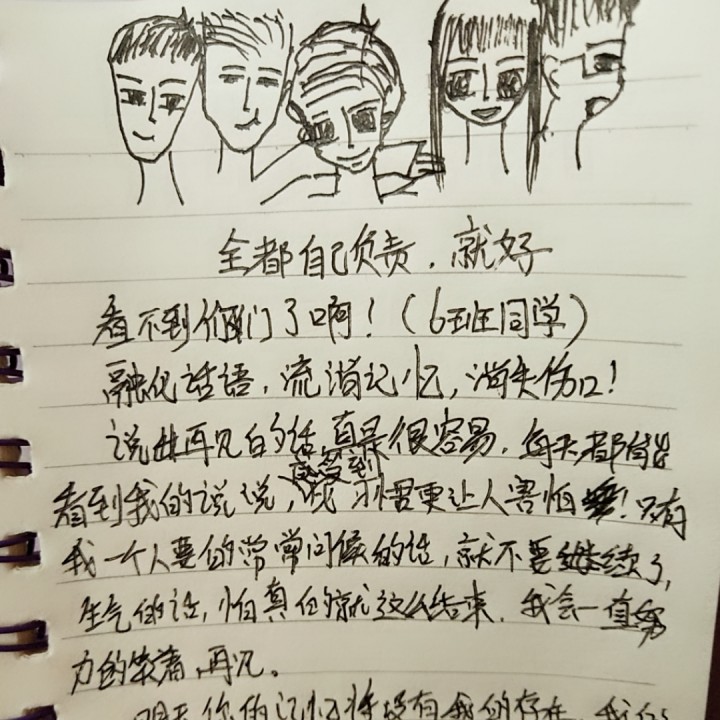 全都自己负责，就好
看不到你们了啊！（6班同学）
融化话语，流淌记忆，消失伤口！
说出再见白的话真是很容易，每天都能
感受到
看到我的说说，成习惯更让人害怕！只有
我一个人要的常常问候的话，就不要继续了，
生气的话，怕真的就这么结束，我会一直努
力的笑着，再见。
明天你的记忆将没有我的存在，我的